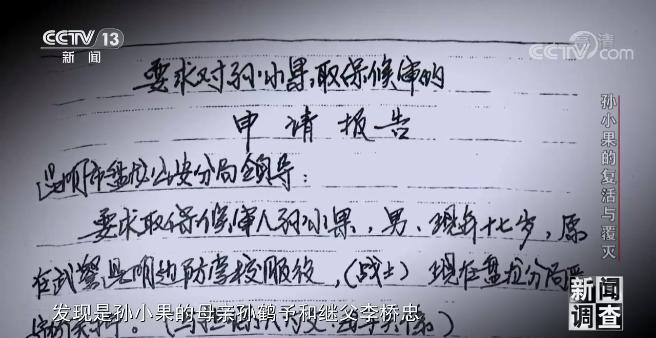 CCTV 13
新闻
高清
CCTV.com
要求对孙小果取保候审的
申请报告
昆明市盘龙公安分局领导：
要求取保候审人孙小果，男、现年十七岁，原
在武警昆明边防学校服役，（战士）现在盘龙分局
孙小果的复活与覆灭
发现是孙小果的母亲孙鹤予和继父李桥忠
新闻
调查